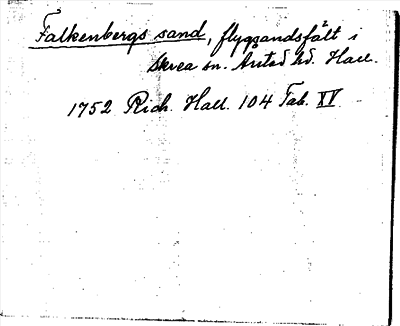 Falkenbergs sand, flygsandsfält i
Skrea sn. Årstad hd. Hall.
1752 Rich. Hall. 104 Tab. XV